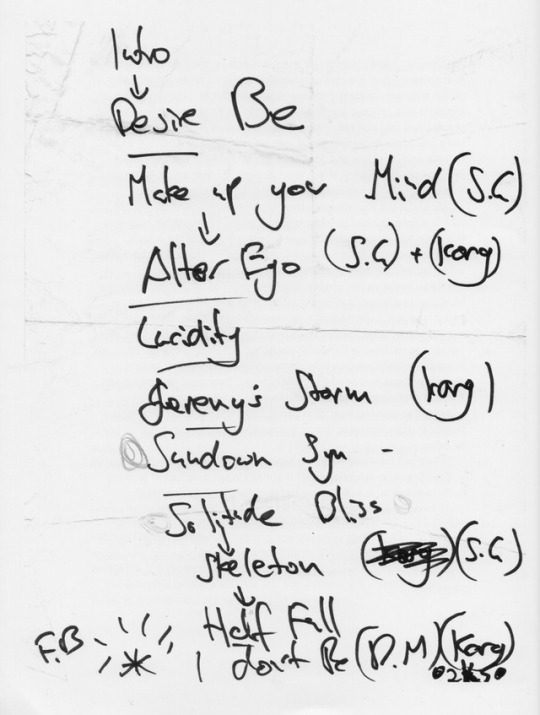 Intro
Desire Be
Make up your Mind (S.G)
Alter Ego (S.G) + (Korg)
Lucidity
Jeremy's Storm (Korg)
Sundown Syn -
Solitude Bliss
Skeleton (S.G)
Half Full
F.B I don't Be (D.M) (Korg)